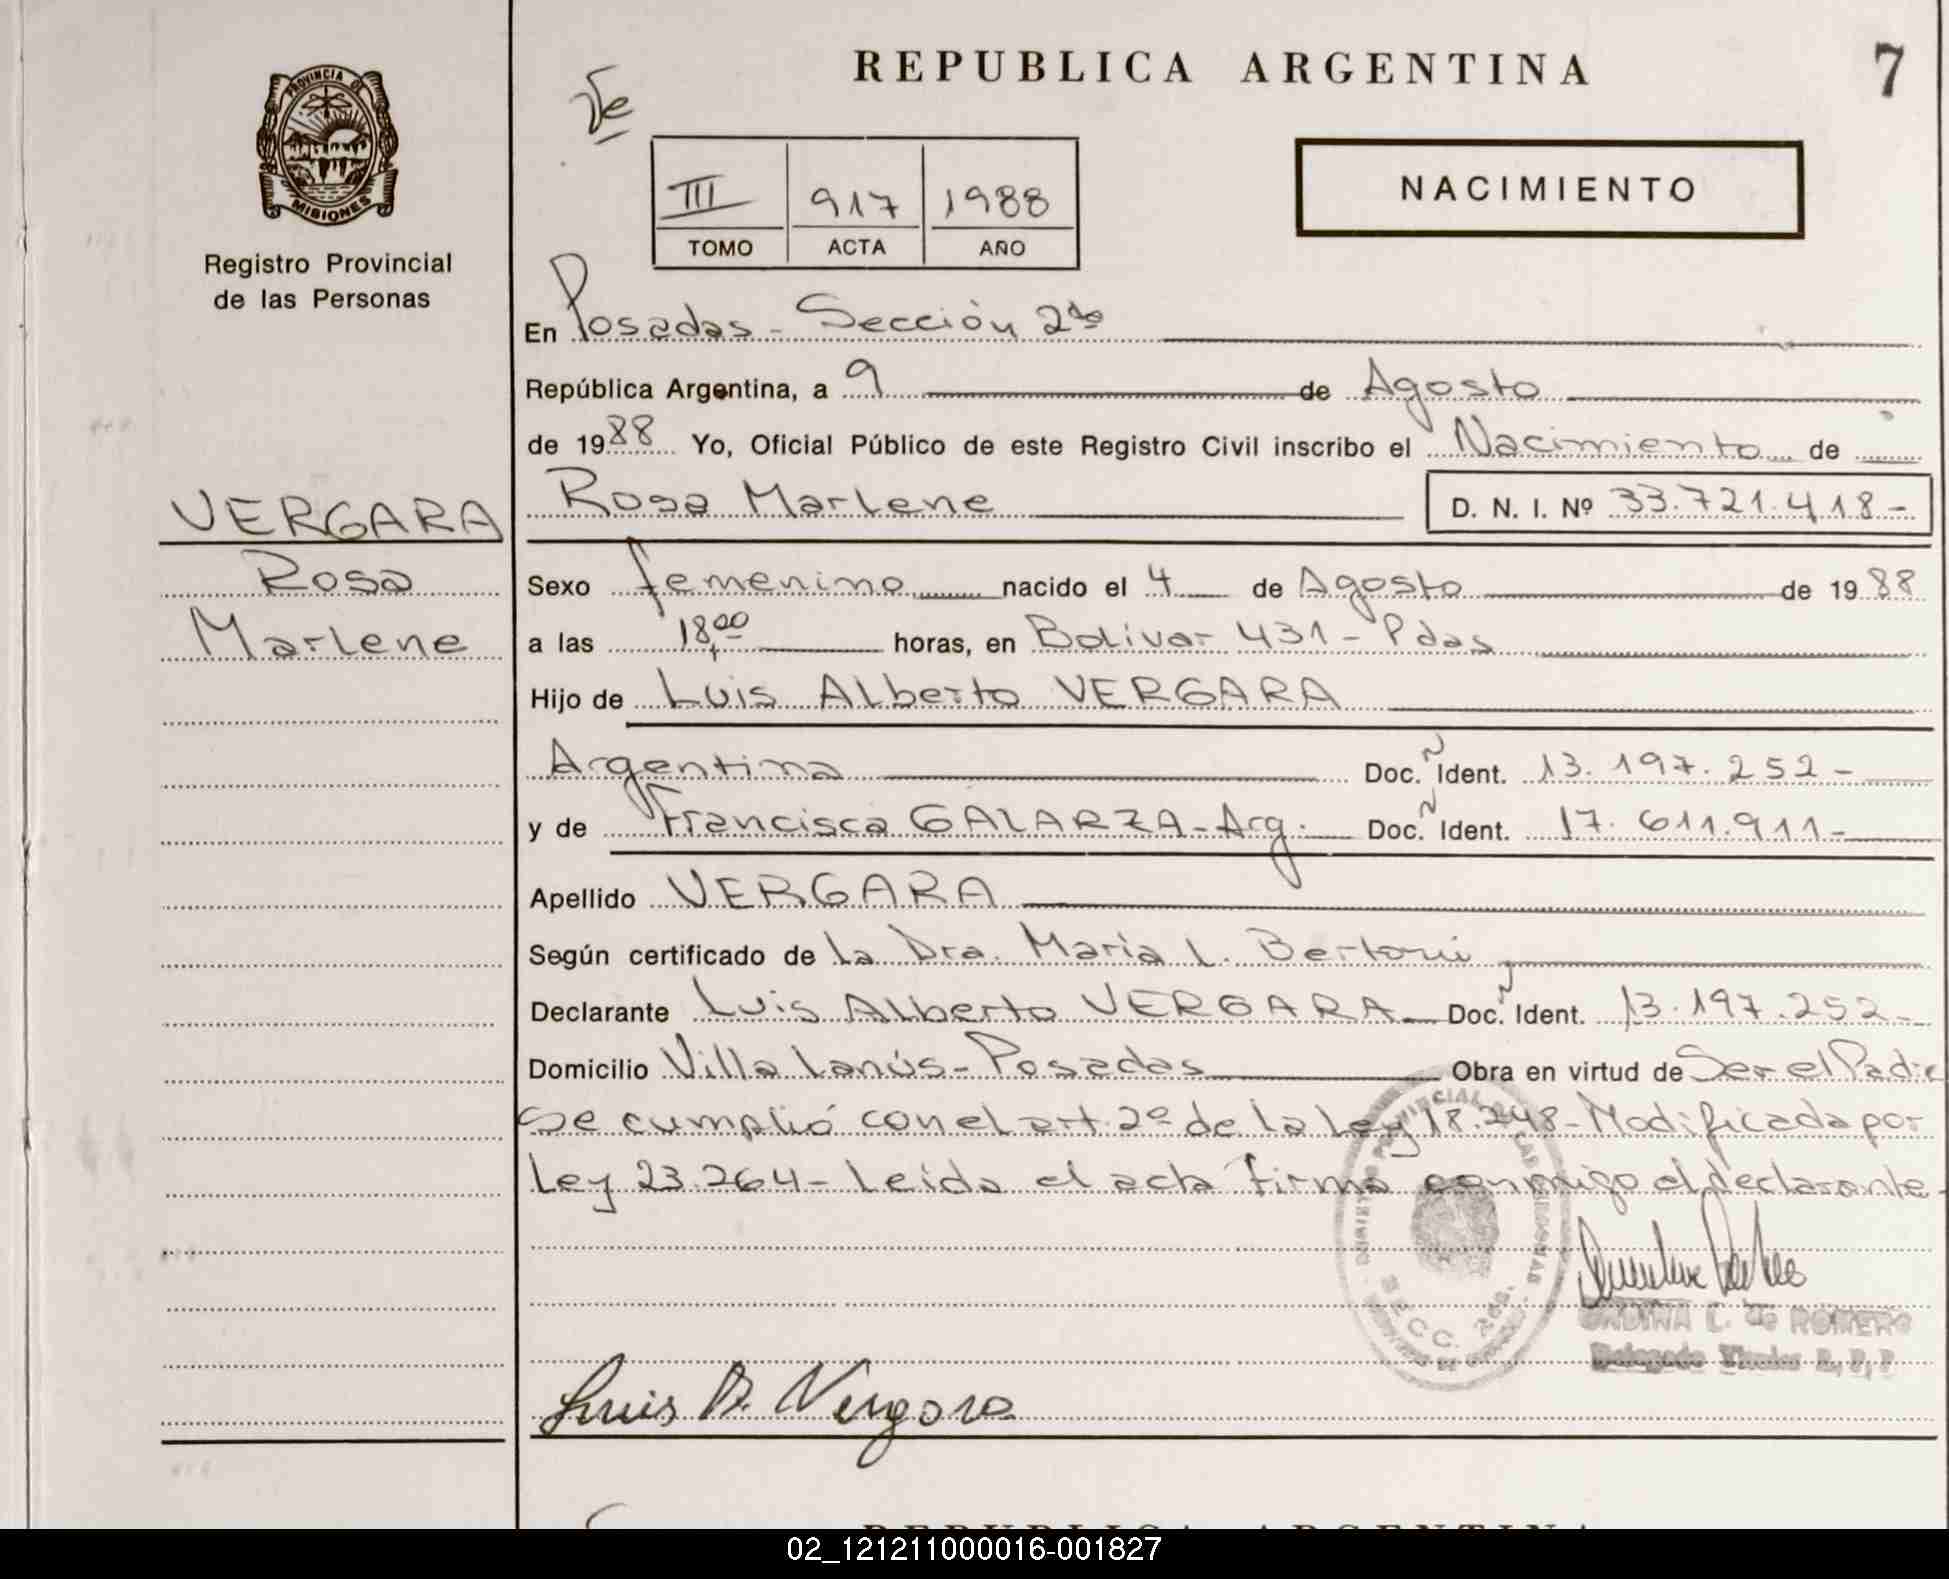 REPUBLICA ARGENTINA
7
PROVINCIA DE
MISIONES
Registro Provincial
de las Personas
III 917 1988
TOMO ACTA AÑO
NACIMIENTO
En Posadas - Sección 2da
República Argentina, a 9 de Agosto
de 1988 Yo, Oficial Público de este Registro Civil inscribo el Nacimiento de
Rosa Marlene D. N. I. Nº 33.721.418-
VERGARA
Rosa
Marlene
Sexo femenino nacido el 4 de Agosto de 1988
a las 18,00 horas, en Bolivar 431 - Pdas
Hijo de Luis Alberto VERGARA
Argentina Doc. Ident. 13.197.252-
y de Francisca GALARZA - Arg. Doc. Ident. 17.611.911-
Apellido VERGARA
Según certificado de la Dra. Maria L. Bertoni
Declarante Luis Alberto VERGARA Doc. Ident. 13.197.252-
Domicilio Villa Lanús - Posadas Obra en virtud de Ser el Padre
Se cumplió con el art. 2º de la Ley 18.248 - Modificada por
Ley 23.264 - Leída el acta firma conmigo el declarante-
SECC. 2da.
ONDINA C. de ROMERO
Delegada Titular R.P.P
Luis A. Vergara
REPUBLICA ARGENTINA
02_121211000016-001827